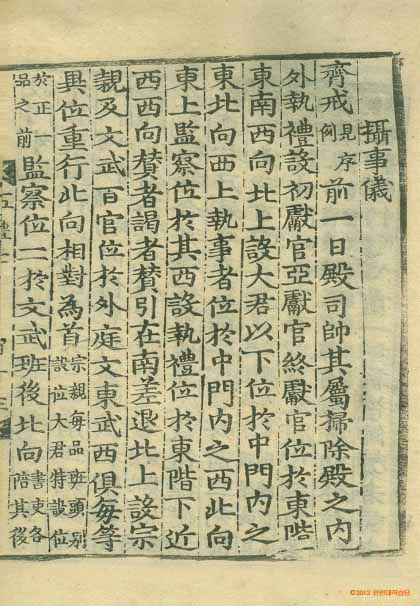 攝事儀
齊戒見序例前一日殿司帥其屬掃除殿之內
外執禮設初獻官亞獻官終獻官位於東階
東南西向北上設大君以下位於中門內之
東北向西上執事者位於中門內之西北向
東上監察位於其西設執禮位於東階下近
西西向賛者謁者賛引在南差退北上設宗
親及文武百官位於外庭文東武西俱每等
異位重行北向相對為首宗親每品班頭別設位大君特設位
於正一品之前監察位二於文武班後北向書吏各陪其後